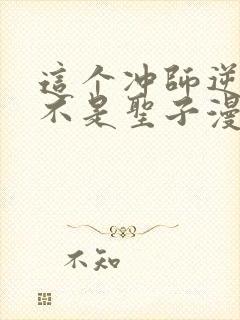 這个冲師逆
不是聖子漫
不知